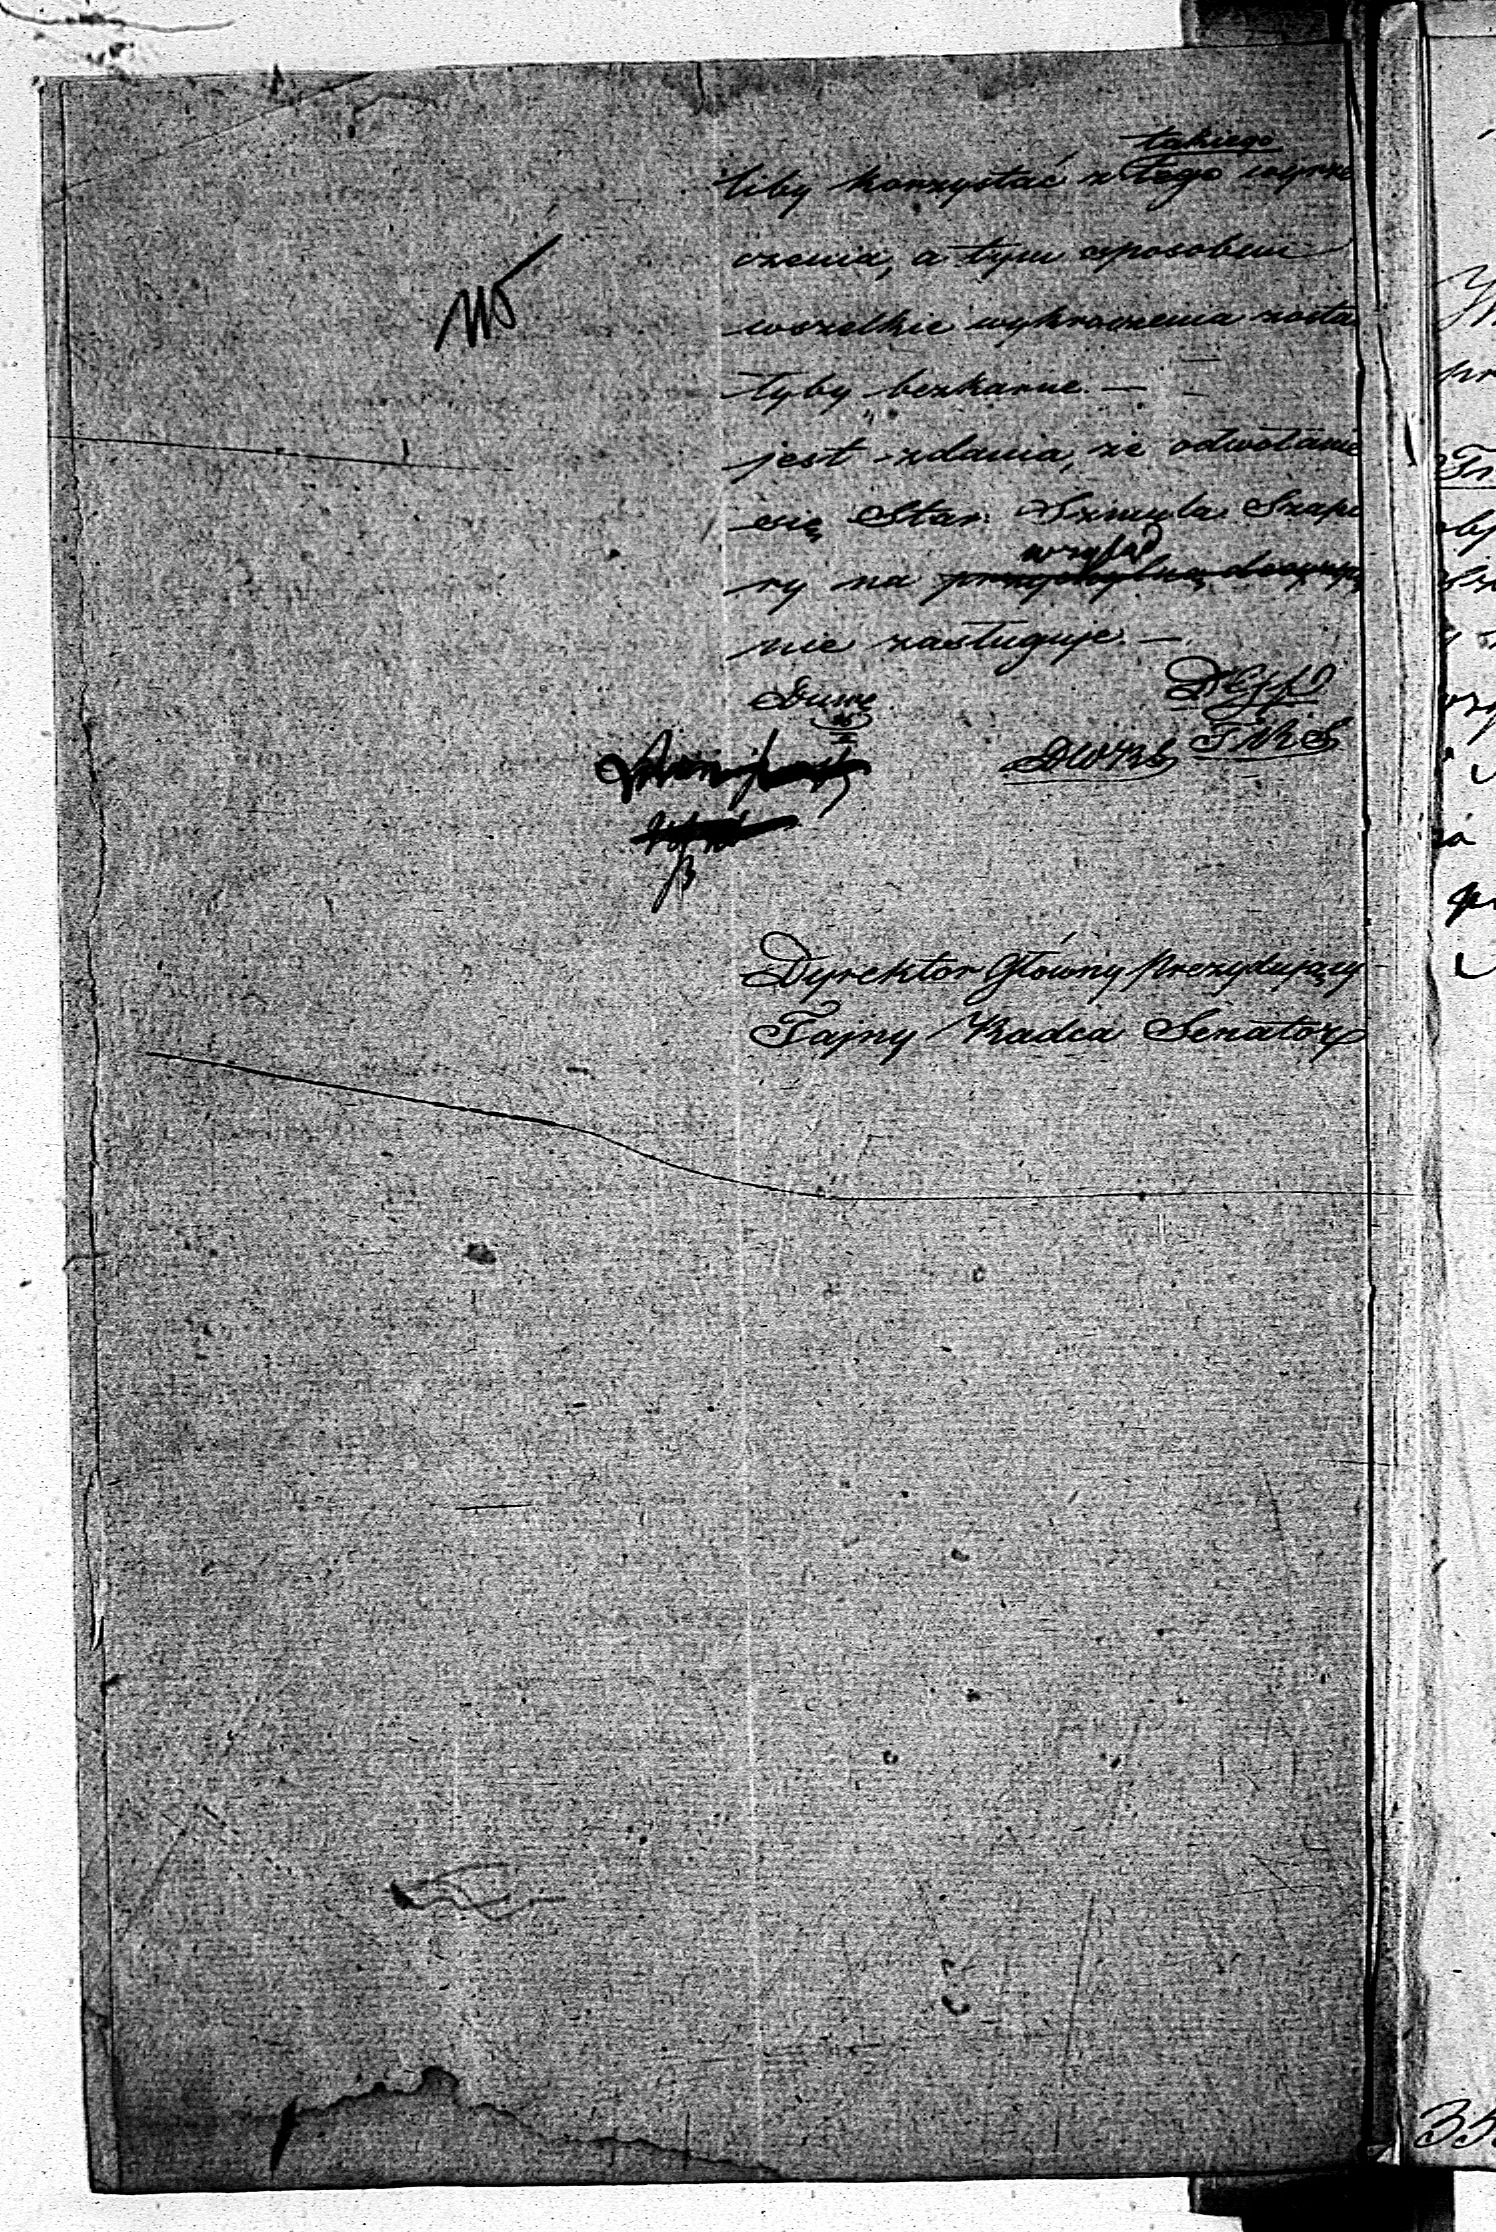 takiego
liby korzystać z tego wyrze
czenia, a tym sposobem
wszelkie wykroczenia zosta
łyby bezkarne. —
jest zdania, że odwołanie
się Star. Szmula Szapi
wzgląd
ry na przychylną decyzyą
nie zasługuje. —
DGPP
TRS
Dyrektor Główny Prezydujący
Tajny Radca Senator